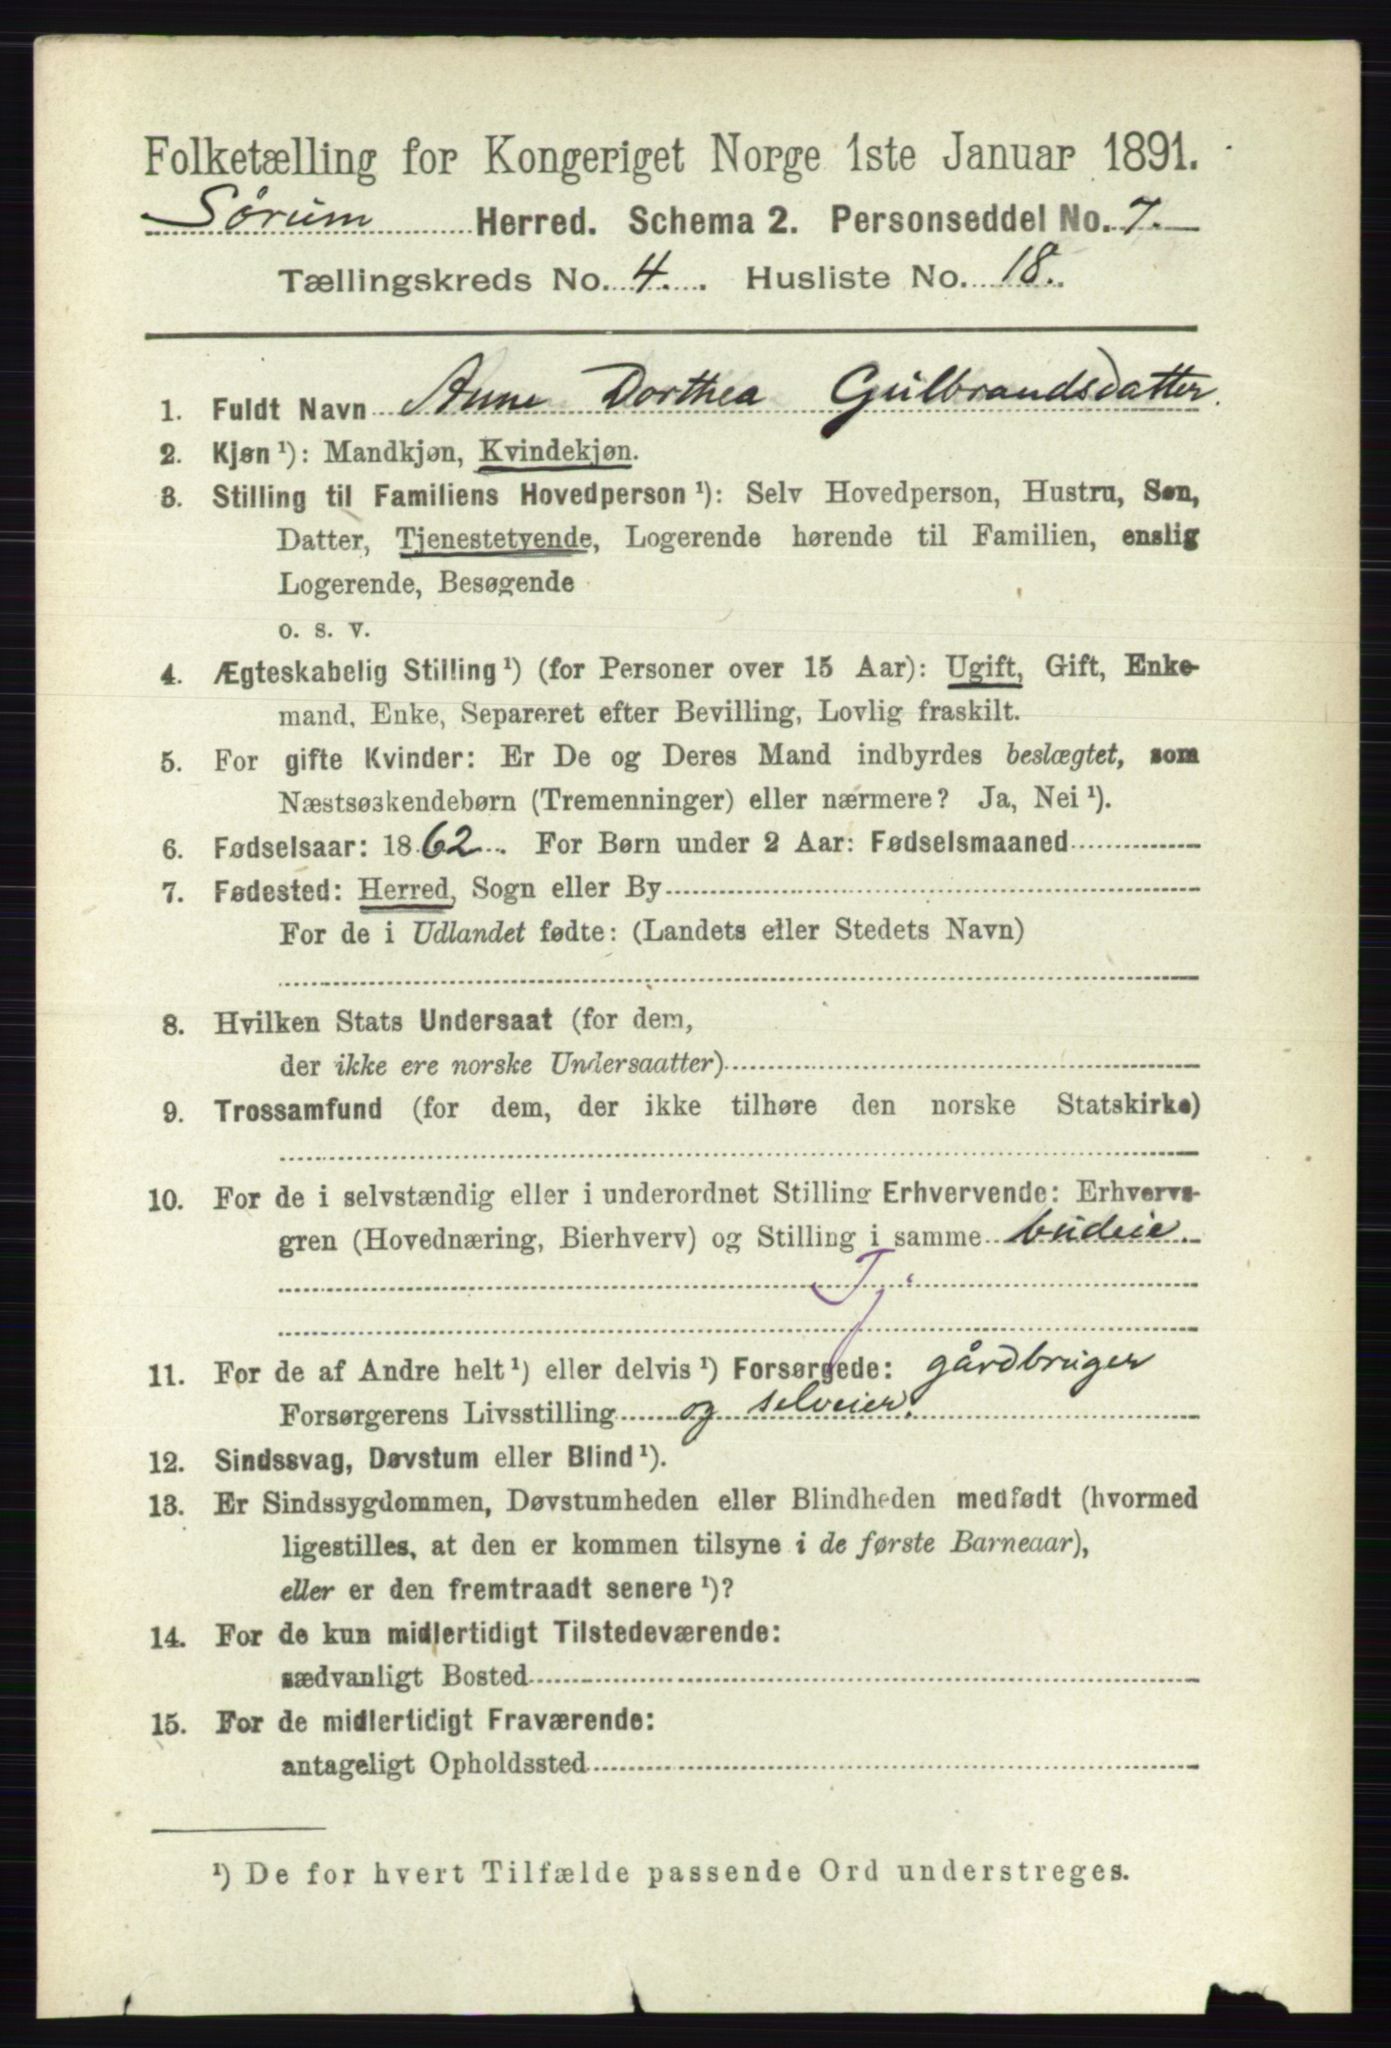 Folketælling for Kongeriget Norge 1ste Januar 1891.
Sørum Herred. Schema 2. Personseddel No. 7.
Tællingskreds No. 4. Husliste No. 18.
1. Fuldt Navn Anne Dorthea Gulbrandsdatter.
2. Kjøn ¹): Mandkjøn, Kvindekjøn.
3. Stilling til Familiens Hovedperson ¹): Selv Hovedperson, Hustru, Søn,
Datter, Tjenestetyende, Logerende hørende til Familien, enslig
Logerende, Besøgende
o. s. v.
4. Ægteskabelig Stilling ¹) (for Personer over 15 Aar): Ugift, Gift, Enke-
mand, Enke, Separeret efter Bevilling, Lovlig fraskilt.
5. For gifte Kvinder: Er De og Deres Mand indbyrdes beslægtet, som
Næstsøskendebørn (Tremenninger) eller nærmere? Ja, Nei ¹).
6. Fødselsaar: 1862. For Børn under 2 Aar: Fødselsmaaned
7. Fødested: Herred, Sogn eller By
For de i Udlandet fødte: (Landets eller Stedets Navn)
8. Hvilken Stats Undersaat (for dem,
der ikke ere norske Undersaatter)
9. Trossamfund (for dem, der ikke tilhøre den norske Statskirke)
10. For de i selvstændig eller i underordnet Stilling Erhvervende: Erhvervs-
gren (Hovednæring, Bierhverv) og Stilling i samme budeie.
Tj.
11. For de af Andre helt ¹) eller delvis ¹) Forsørgede: gårdbruger
Forsørgerens Livsstilling og selveier.
12. Sindssvag, Døvstum eller Blind ¹).
13. Er Sindssygdommen, Døvstumheden eller Blindheden medfødt (hvormed
ligestilles, at den er kommen tilsyne i de første Barneaar),
eller er den fremtraadt senere ¹)?
14. For de kun midlertidigt Tilstedeværende:
sædvanligt Bosted
15. For de midlertidigt Fraværende:
antageligt Opholdssted
¹) De for hvert Tilfælde passende Ord understreges.